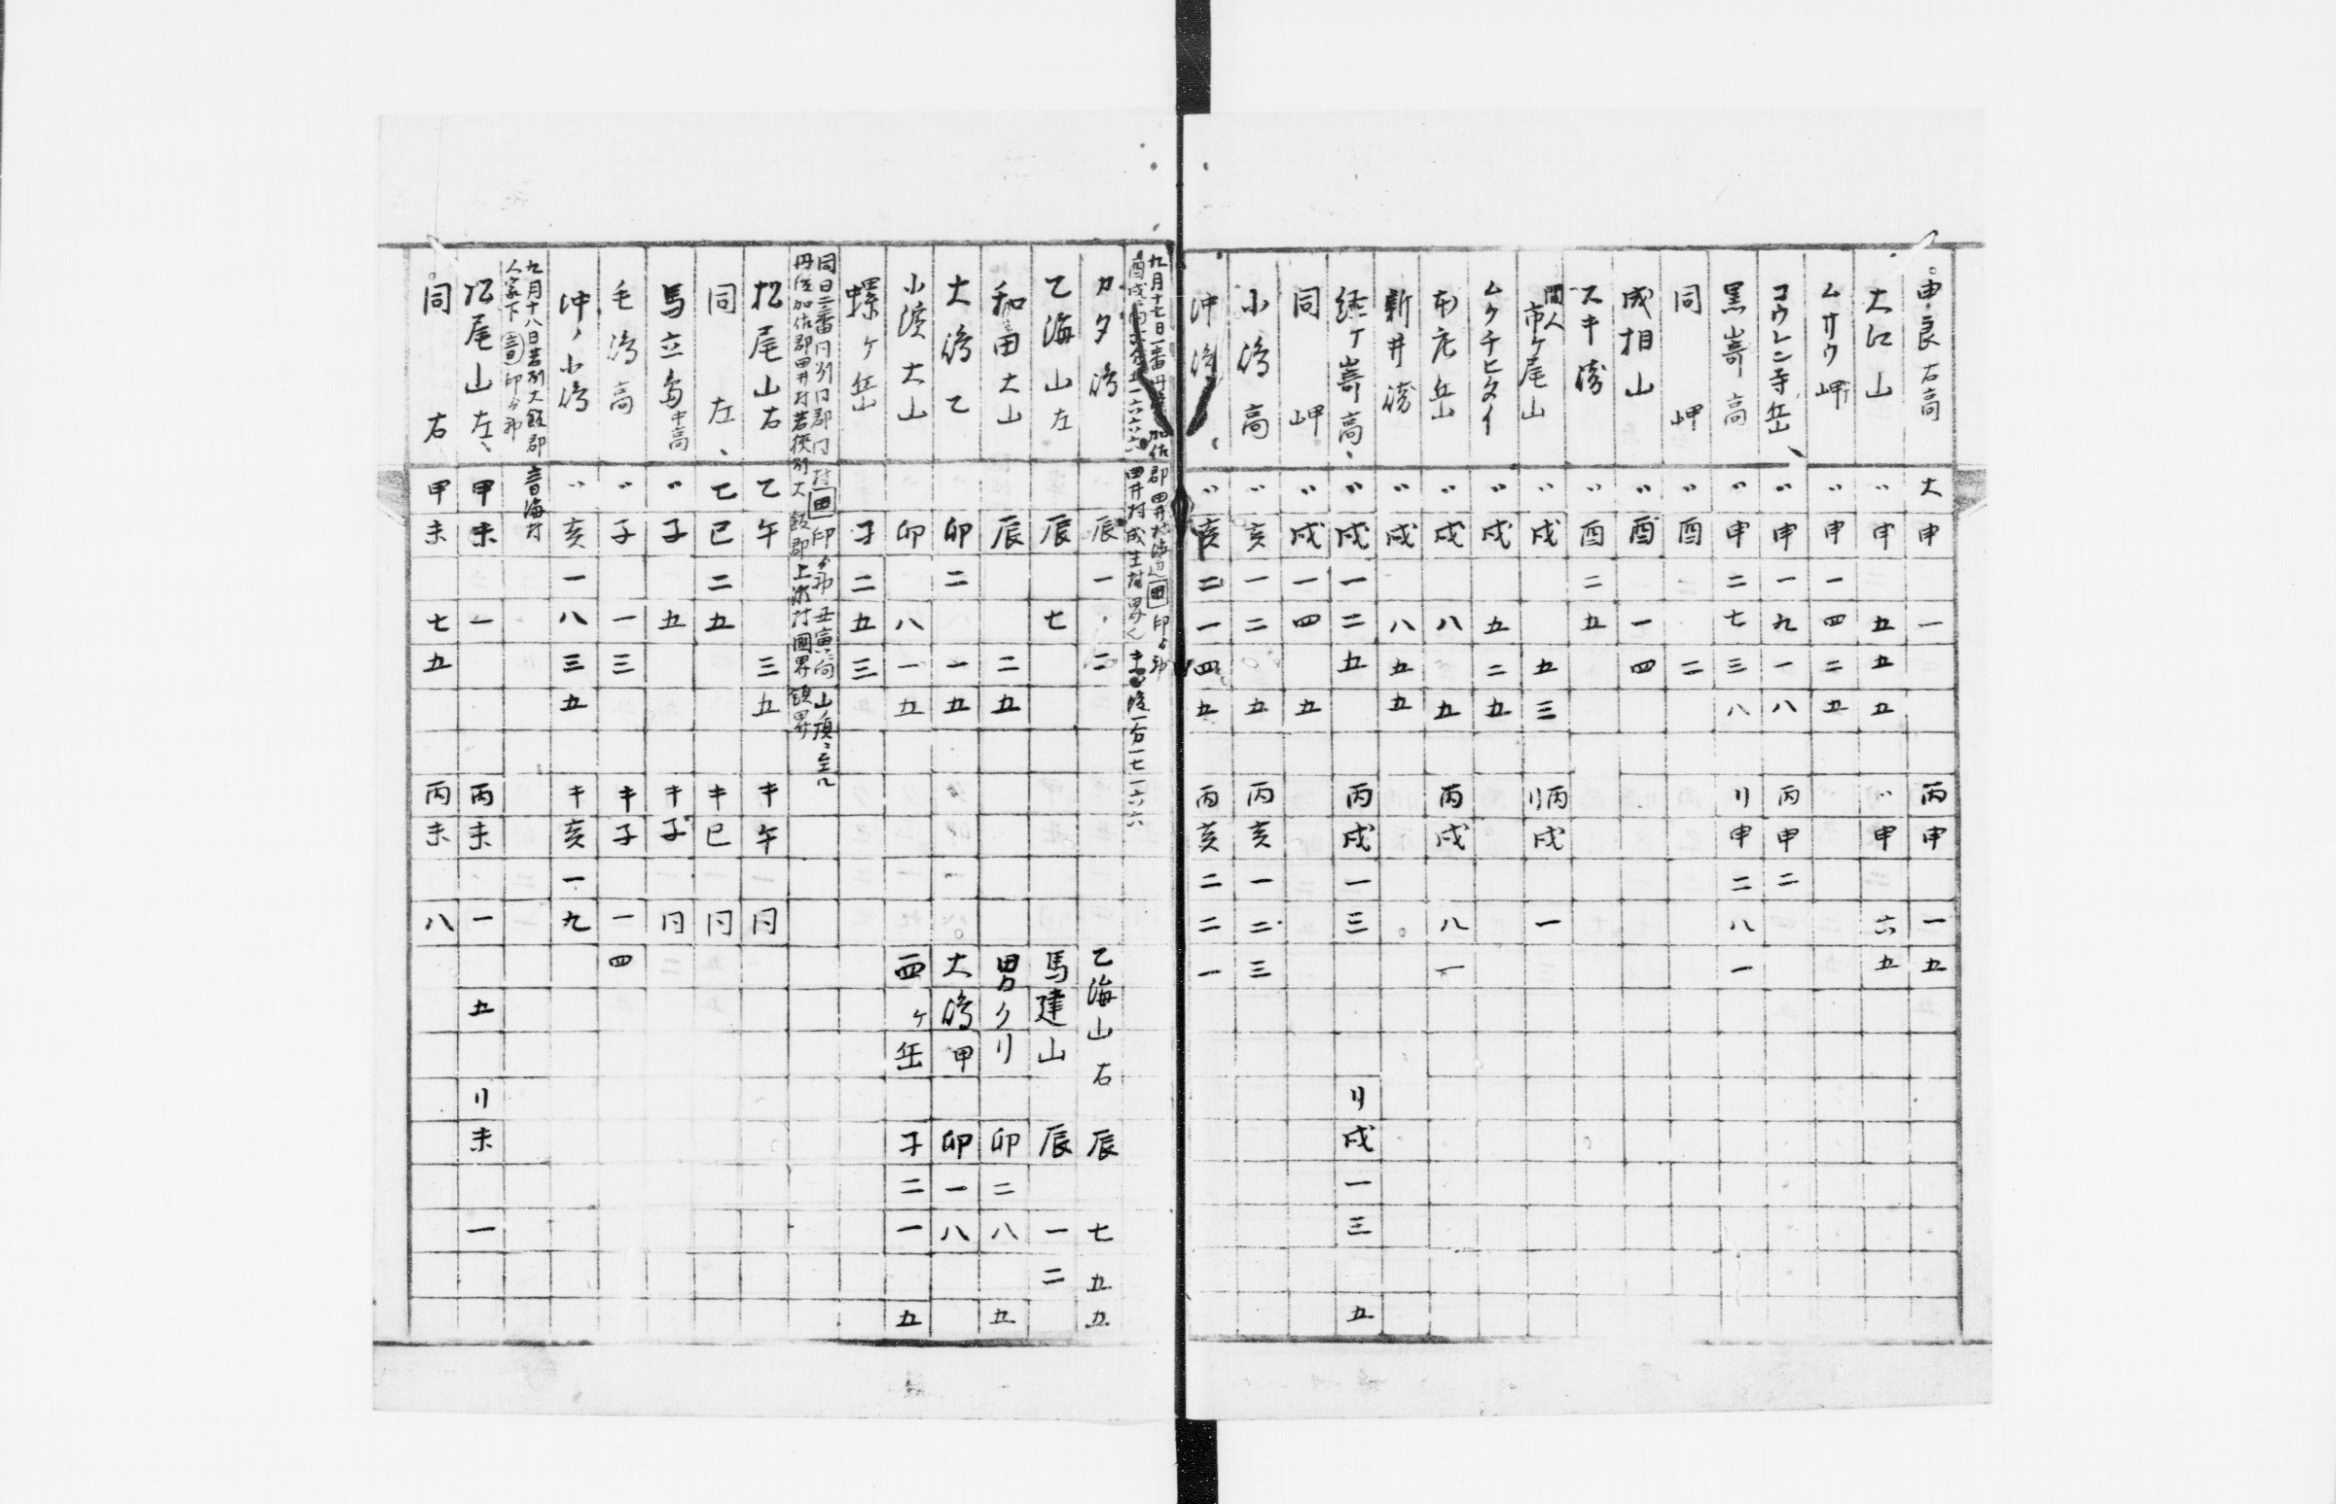 由良右高 大申 一 丙申 一五
大江山 〃申 五五五 〃申 六五
ムサウ岬 〃申 一四二五
コウレン寺岳 〃申 一九一八 丙申 二
黒嵜高 〃申 二七三八 リ申 二八一
同 岬 〃酉 二
成相山 〃酉 一四
スキ崎 〃酉 二五
間人市ケ尾山 〃戌 五三 丙リ戌 一
ムクチヒタイ 〃戌 五二五
岳 〃戌 八 五 丙戌 八一
新井崎 〃戌 八五五
経ケ嵜高 〃戌 一二五 丙戌 一三 リ戌 一三 五
同 岬 〃戌 一四 五
小嶋高 〃亥 一二 五 丙亥 一二三
沖嶋 〃亥 二一四五 丙亥 二二一
九月十七日一番丹後加佐郡田井村 田印
田井村成生村界
カタ嶋 辰 一 二 乙海山右 辰 七五五
乙海山左 辰 七 馬建山 辰 一二
和田大山 辰 二五 男クリ 卯 二八 五
大嶋乙 卯 二 一五 大嶋甲 卯 一八
小濱大山 卯 八一五 西ケ岳 子 二一 五
螺ケ岳 子 二五三
同日二番同列同郡同村田印 丑寅ニ向山頂ニ至ル
丹後加佐郡田井村若狭列大飯郡上瀬村國界
松尾山右 乙午 三五 キ午 同
同 左 乙巳 二五 キ巳 同
馬立島中高 〃子 五 キ子 同
毛嶋高 〃子 一三 キ子 一四
沖ノ小嶋 〃亥 一八三五 キ亥 一九
九月十八日若列大飯郡音海村
人家下 音印
松尾山左 甲未 一 丙未 一 五 リ未 一
同 右 甲未 七五 丙未 八